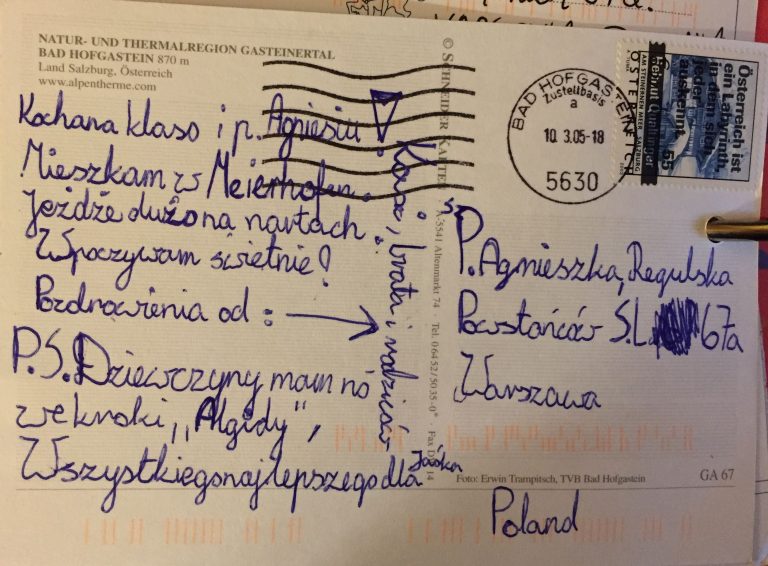 NATUR- UND THERMALREGION GASTEINERTAL
BAD HOFGASTEIN 870 m
Land Salzburg, Österreich
www.alpentherme.com
Kochana klaso i p. Agniesiu!
Mieszkam w Meierhofen.
Jeżdżę dużo na nartach.
Wpoczywam świetnie!
Pozdrowienia od:
brata i rodziców
P.S. Dziewczyny mam no
we kroski „Algidy”,
Wszystkiego najlepszego dla
© SCHNEIDER KARTEN
A-5541 Altenmarkt 74 Tel. 06452/5035-0 Fax 14
BAD HOFGASTEIN
Zustellbasis
a
10. 3.05-18
5630
ÖSTERREICH
Österreich ist
ein Labyrinth,
in dem sich
jeder
auskennt
Helmut Qualtinger
55
P. Agnieszka Regulska
Powstańców Ś.L. 67a
Warszawa
Poland
Foto: Erwin Trampitsch, TVB Bad Hofgastein
GA 67